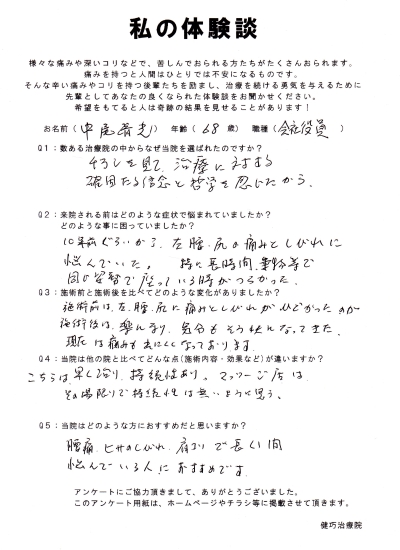 私の体験談
様々な痛みや深いコリなどで、苦しんでおられる方たちがたくさんおられます。
痛みを持つと人間はひとりでは不安になるものです。
そんな辛い痛みやコリを持つ後輩たちを励まし、治療を続ける勇気を与えるために
先輩としてあなたの良くなられた体験談をお聞かせください。
希望をもてると人は奇跡の結果を見せることがあります！
お名前（中尾 光） 年齢（68歳） 職種（会社役員）
Q1：数ある治療院の中からなぜ当院を選ばれたのですか？
チラシを見て、治療に対する
確固たる信念と哲学を感じたから。
Q2：来院される前はどのような症状で悩まれていましたか？
どのような事に困っていましたか？
10年前ぐらいから、左腰・尻の痛みとしびれに
悩んでいた。 特に長時間、車等で
同じ姿勢で座っている時がつらかった。
Q3：施術前と施術後を比べてどのような変化がありましたか？
施術前は、左腰・尻に痛みとしびれがひどかったのが
施術後は、楽になり、気分もそう快になってきた。
現在は痛みもほとんどなくなっております。
Q4：当院は他の院と比べてどんな点(施術内容・効果など)が違いますか？
こちらは、早く治り、持続性あり。マッサージ店は、
その場限りで持続性は無いように思う。
Q5：当院はどのような方におすすめだと思いますか？
腰痛、ヒザのしびれ、肩コリで長い間
悩んでいる人におすすめです。
アンケートにご協力頂きまして、ありがとうございました。
このアンケート用紙は、ホームページやチラシ等に掲載させて頂きます。
健巧治療院